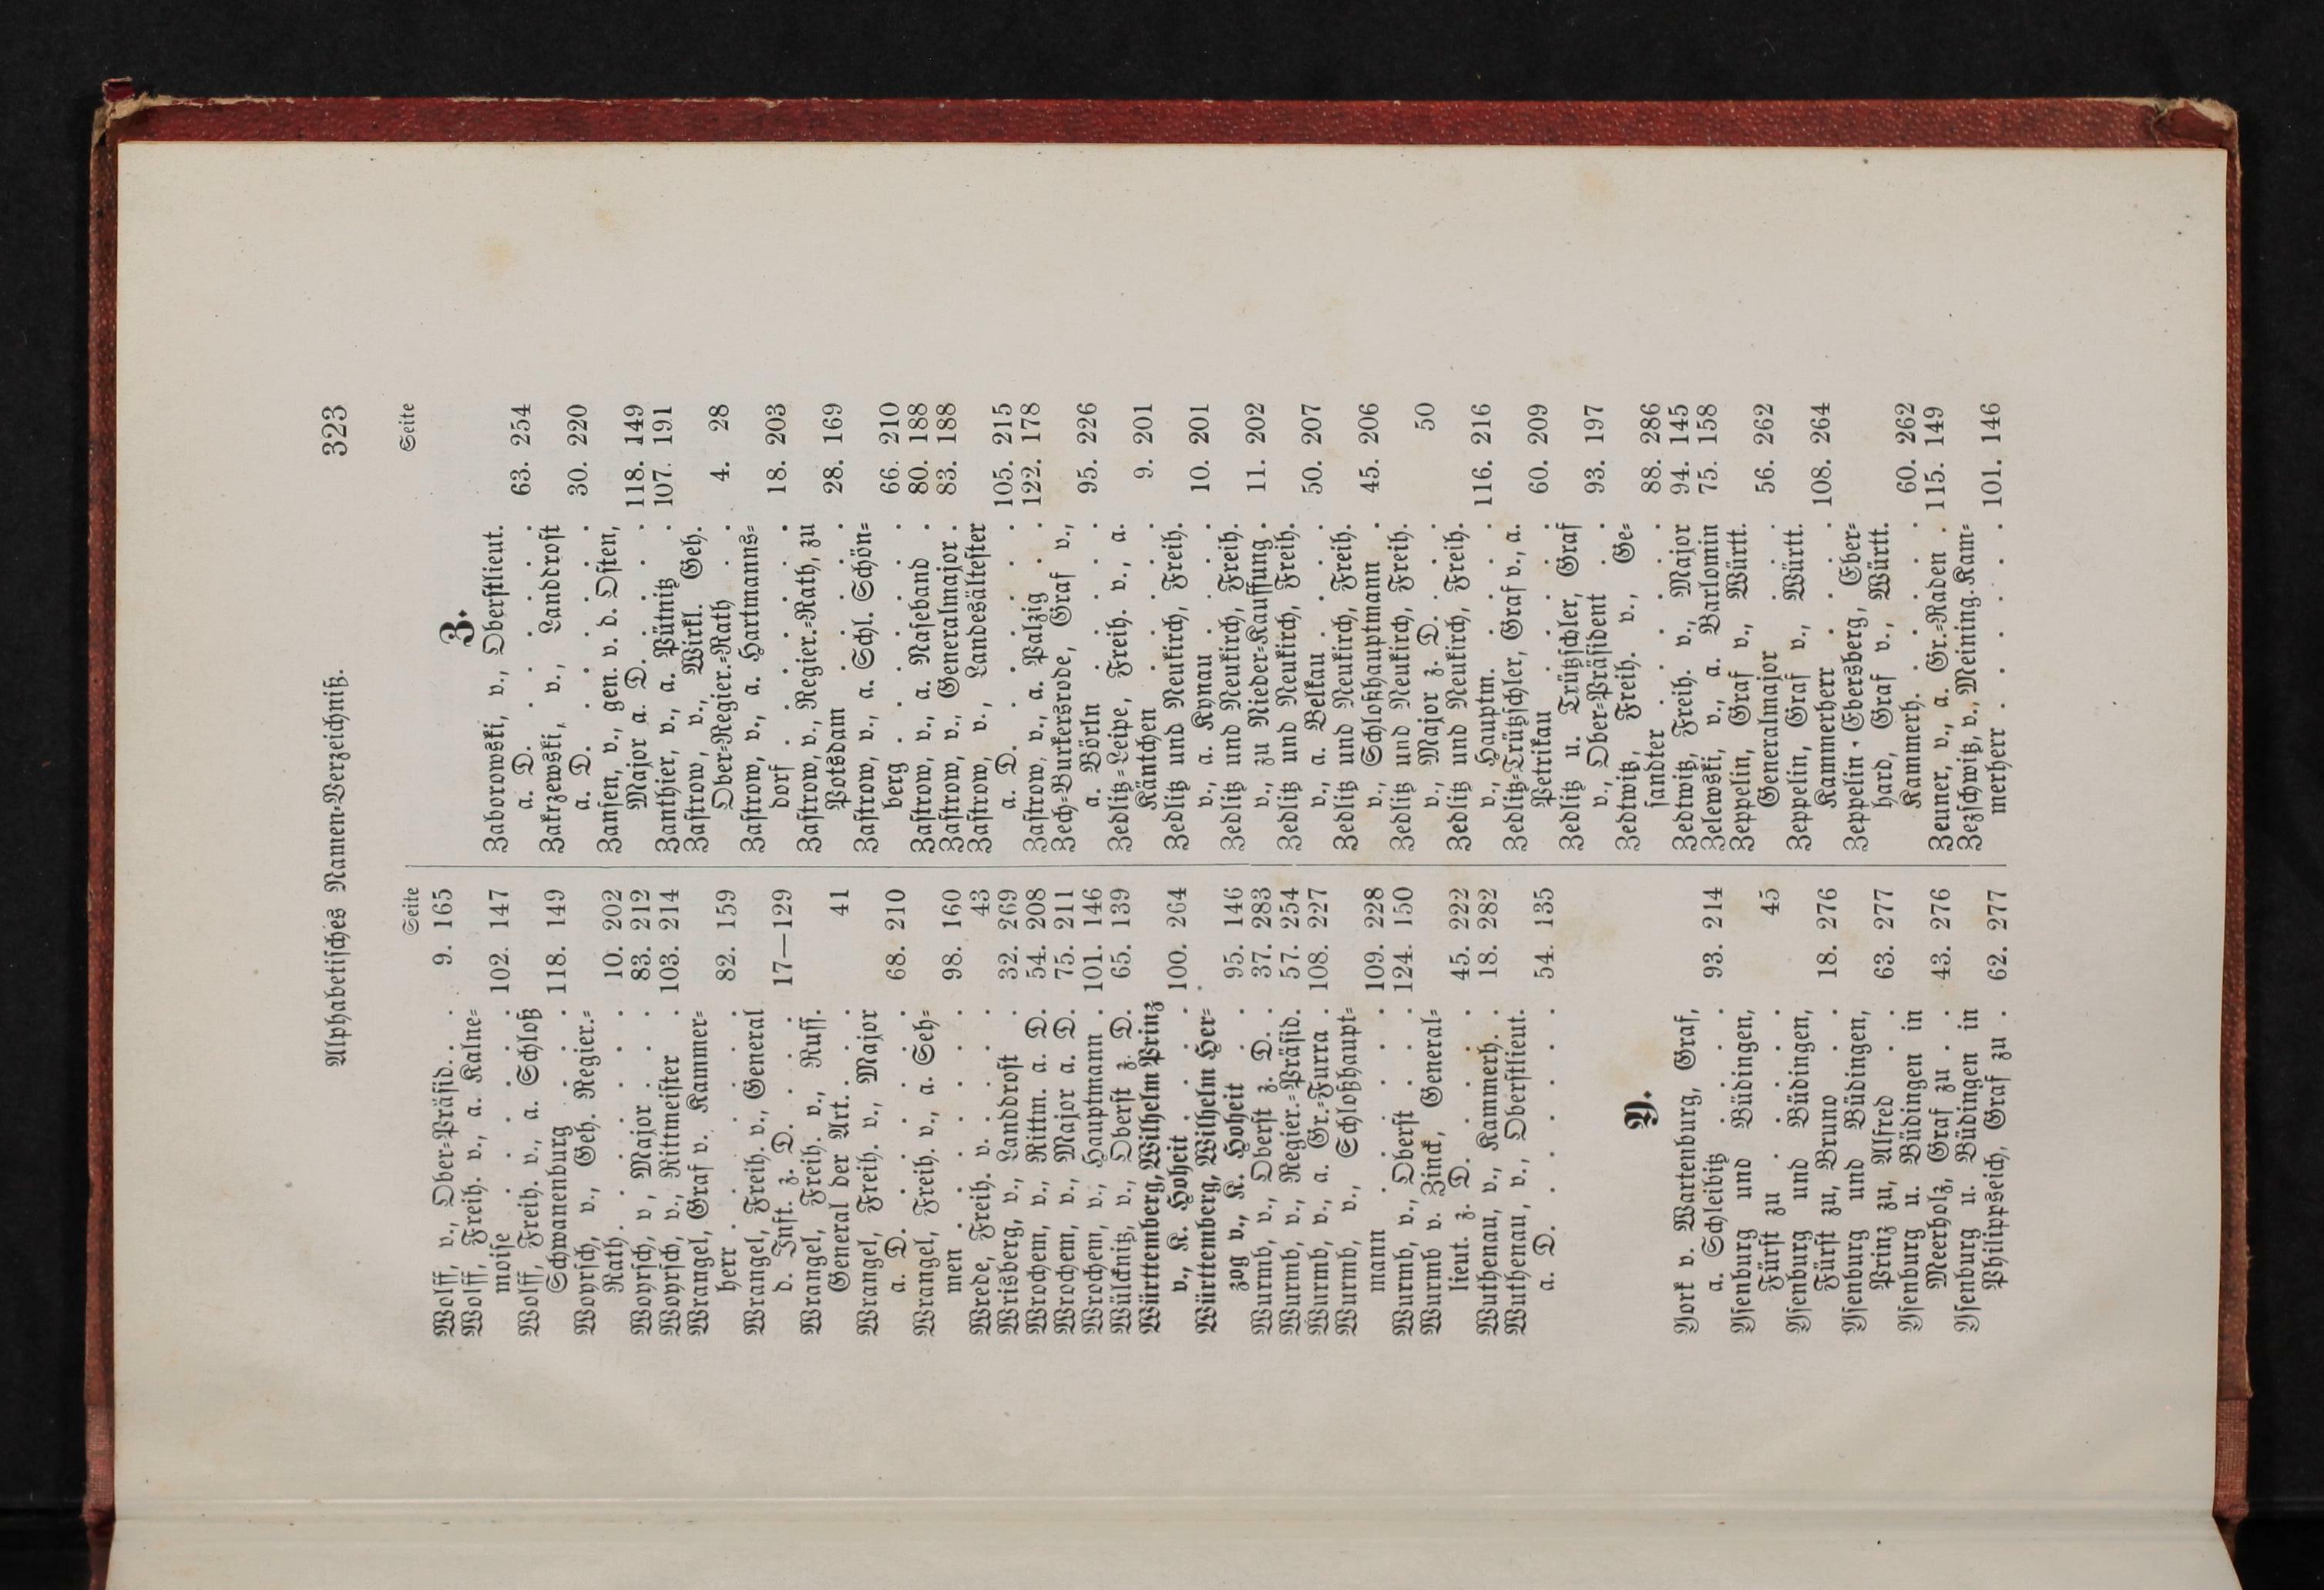 Alphabetisches Namen-Verzeichniß. 323
Seite
Wolff, v., Ober-Präsid. . . 9. 165
Wolff, Freih. v., a. Kalne-
moise . . . . . 102. 147
Wolff, Freih. v., a. Schloß
Schwanenburg . . . 118. 149
Woyrsch, v., Geh. Regier.-
Rath . . . . . 10. 202
Woyrsch, v, Major . . . 83. 212
Woyrsch, v., Rittmeister . . 103. 214
Wrangel, Graf v. Kammer-
herr . . . . . 82. 159
Wrangel, Freih. v., General
d. Inft. z. D. . . . 17—129
Wrangel, Freih. v., Russ.
General der Art. . . . 41
Wrangel, Freih. v., Major
a. D. . . . . . 68. 210
Wrangel, Freih. v., a. Seh-
men . . . . . 98. 160
Wrede, Freih. v. . . . . 43
Wrisberg, v., Landdrost . . 32. 269
Wrochem, v., Rittm. a. D. 54. 208
Wrochem, v., Major a. D. 75. 211
Wrochem, v., Hauptmann . 101. 146
Wülcknitz, v., Oberst z. D. 65. 139
Württemberg, Wilhelm Prinz
v., K. Hoheit . . . . 100. 264
Württemberg, Wilhelm Her-
zog v., K. Hoheit . . 95. 146
Wurmb, v., Oberst z. D. . 37. 283
Wurmb, v., Regier.-Präsid. 57. 254
Wurmb, v., a. Gr.-Furra . 108. 227
Wurmb, v., Schloßhaupt-
mann . . . . . 109. 228
Wurmb, v., Oberst . . . 124. 150
Wurmb v. Zinck, General-
lieut. z. D. . . . . 45. 222
Wuthenau, v., Kammerh. . 18. 282
Wuthenau, v., Oberstlieut.
a. D. . . . . . 54. 135
Y.
York v. Wartenburg, Graf,
a. Schleibitz . . . . 93. 214
Ysenburg und Büdingen,
Fürst zu . . . . . 45
Ysenburg und Büdingen,
Fürst zu, Bruno . . . 18. 276
Ysenburg und Büdingen,
Prinz zu, Alfred . . . 63. 277
Ysenburg u. Büdingen in
Meerholz, Graf zu . . 43. 276
Ysenburg u. Büdingen in
Philippseich, Graf zu . 62. 277
Seite
Z.
Zaborowski, v., Oberstlieut.
a. D. . . . . . 63. 254
Zakrzewski, v., Landdrost
a. D. . . . . . 30. 220
Zansen, v., gen. v. d. Osten,
Major a. D. . . . . 118. 149
Zanthier, v., a. Pütnitz . . 107. 191
Zastrow, v., Wirkl. Geh.
Ober-Regier.-Rath . . 4. 28
Zastrow, v., a. Hartmanns-
dorf . . . . . 18. 203
Zastrow, v., Regier.-Rath, zu
Potsdam . . . . 28. 169
Zastrow, v., a. Schl. Schön-
berg . . . . . 66. 210
Zastrow, v., a. Naseband . 80. 188
Zastrow, v., Generalmajor . 83. 188
Zastrow, v., Landesältester
a. D. . . . . . 105. 215
Zastrow, v., a. Palzig . . 122. 178
Zech-Burkersrode, Graf v.,
a. Börln . . . . 95. 226
Zedlitz-Leipe, Freih. v., a.
Käntchen . . . . 9. 201
Zedlitz und Neukirch, Freih.
v., a. Kynau . . . . 10. 201
Zedlitz und Neukirch, Freih.
v., zu Nieder-Kauffung . 11. 202
Zedlitz und Neukirch, Freih.
v., a. Belkau . . . . 50. 207
Zedlitz und Neukirch, Freih.
v., Schloßhauptmann . 45. 206
Zedlitz und Neukirch, Freih.
v., Major z. D. . . . 50
Zedlitz und Neukirch, Freih.
v., Hauptm. . . . . 116. 216
Zedlitz-Trützschler, Graf v., a.
Petrikau . . . . . 60. 209
Zedlitz u. Trützschler, Graf
v., Ober-Präsident . . 93. 197
Zedtwitz, Freih. v., Ge-
sandter . . . . . 88. 286
Zedtwitz, Freih. v., Major 94. 145
Zelewski, v., a. Barlomin 75. 158
Zeppelin, Graf v., Württ.
Generalmajor . . . . 56. 262
Zeppelin, Graf v., Württ.
Kammerherr . . . . 108. 264
Zeppelin-Ebersberg, Eber-
hard, Graf v., Württ.
Kammerh. . . . . 60. 262
Zeuner, v., a. Gr.-Raden . 115. 149
Zezschwitz, v., Meining. Kam-
merherr . . . . . 101. 146